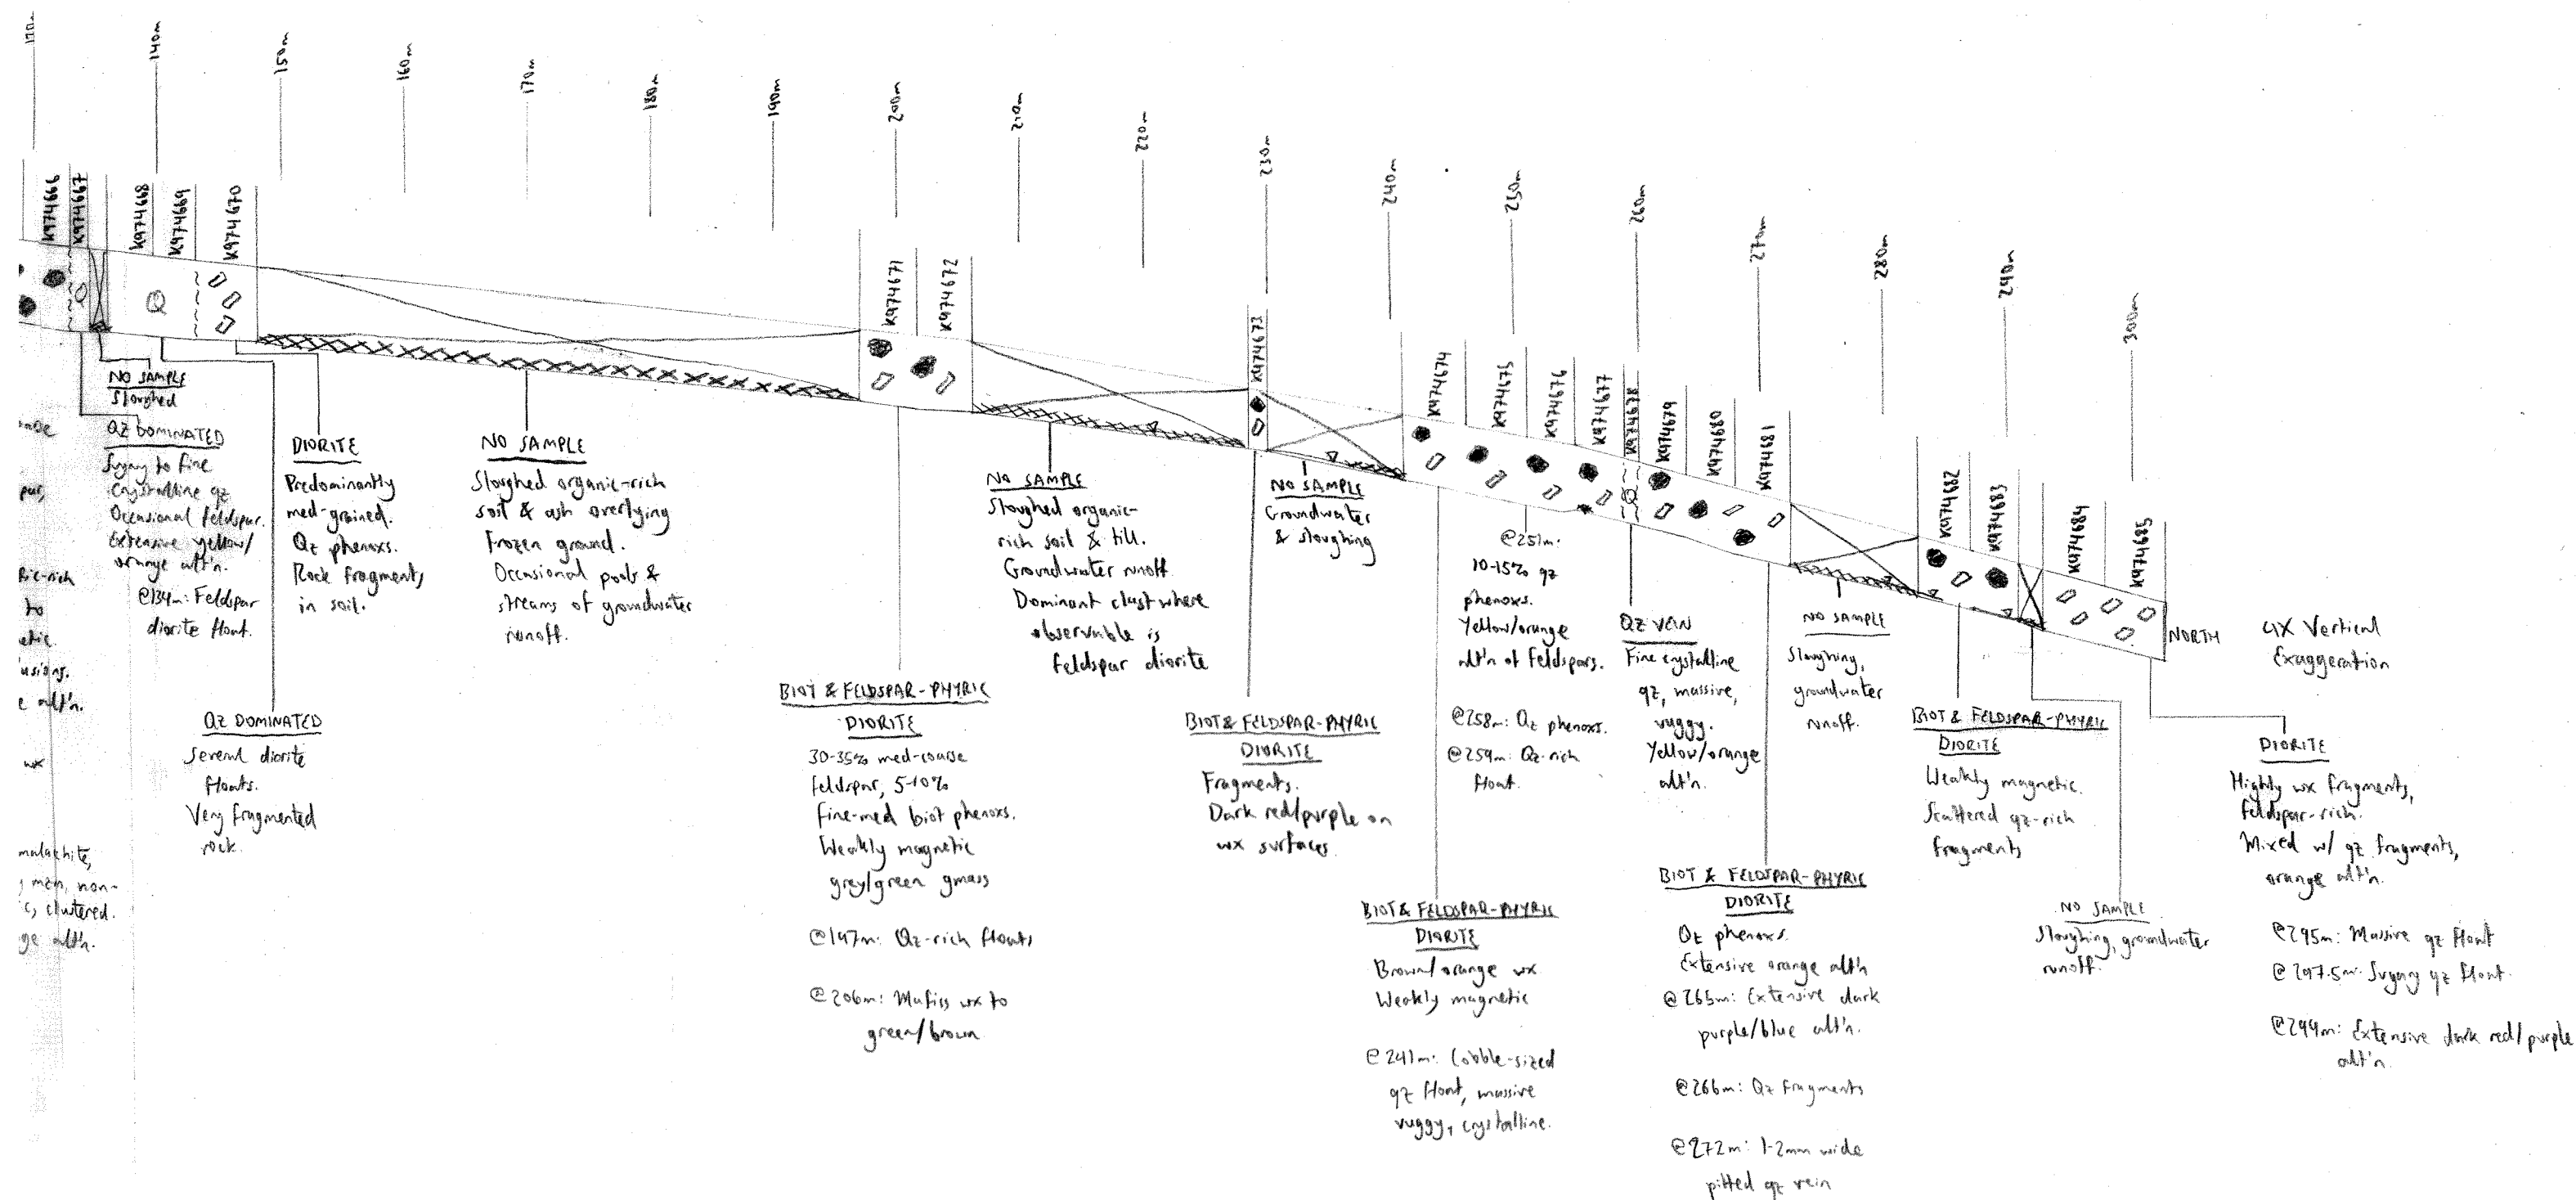 140m
150m
160m
170m
180m
190m
200m
210m
220m
230m
240m
250m
260m
270m
280m
290m
300m
K974666
K974667
K974668
K974669
K974670
K974671
K974672
K974673
K974674
K974675
K974676
K974677
K974678
K974679
K974680
K974681
K974682
K974683
K974684
K974685
Q
Q
Q
NORTH
4X Vertical
Exaggeration
NO SAMPLE
Sloughed
QZ DOMINATED
Sugary to fine
crystalline qz
Occasional feldspar.
Extensive yellow/
orange alt'n.
@134m: Feldspar
diorite float.
QZ DOMINATED
Several diorite
floats.
Very fragmented
rock.
DIORITE
Predominantly
med-grained.
Qz phenoxs.
Rock fragments
in soil.
NO SAMPLE
Sloughed organic-rich
soil & ash overlying
frozen ground.
Occasional pools &
streams of groundwater
runoff.
BIOT & FELDSPAR-PHYRIC
DIORITE
30-35% med-coarse
feldspar, 5-10%
fine-med biot phenoxs.
Weakly magnetic
grey/green gmass
@197m: Qz-rich floats
@206m: Mafics wx to
green/brown
NO SAMPLE
Sloughed organic-
rich soil & till.
Groundwater runoff.
Dominant clast where
observable is
feldspar diorite
BIOT & FELDSPAR-PHYRIC
DIORITE
Fragments.
Dark red/purple on
wx surfaces.
NO SAMPLE
Groundwater
& sloughing
BIOT & FELDSPAR-PHYRIC
DIORITE
Brown/orange wx
Weakly magnetic
@241m: Cobble-sized
qz float, massive
vuggy, crystalline.
@251m:
10-15% qz
phenoxs.
Yellow/orange
alt'n of feldspars.
@258m: Qz phenoxs.
@259m: Qz-rich
float.
QZ VEIN
Fine crystalline
qz, massive,
vuggy.
Yellow/orange
alt'n.
BIOT & FELDSPAR-PHYRIC
DIORITE
Qz phenoxs.
Extensive orange alt'n
@265m: Extensive dark
purple/blue alt'n.
@266m: Qz fragments
@272m: 1-2mm wide
pitted qz vein
NO SAMPLE
Sloughing,
groundwater
runoff.
BIOT & FELDSPAR-PHYRIC
DIORITE
Weakly magnetic.
Scattered qz-rich
fragments
NO SAMPLE
Sloughing, groundwater
runoff.
DIORITE
Highly wx fragments,
feldspar-rich.
Mixed w/ qz fragments,
orange alt'n.
@295m: Massive qz float
@297.5m: Sugary qz float.
@299m: Extensive dark red/purple
alt'n.
ric-rich
to
etic.
usions.
e alt'n.
wx
malachite,
non-
clustered.
ge alt'n.